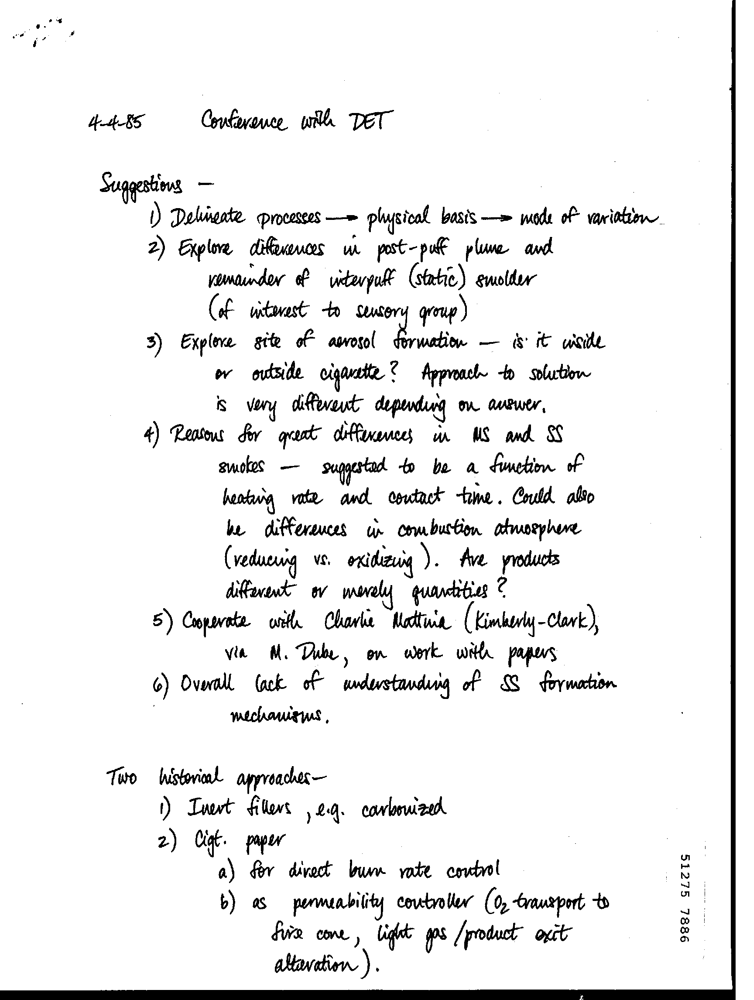 4-4-85 Conference with DET
Suggestions —
1) Delineate processes → physical basis → mode of variation
2) Explore differences in post-puff plume and
remainder of interpuff (static) smolder
(of interest to sensory group)
3) Explore site of aerosol formation — is it inside
or outside cigarette? Approach to solution
is very different depending on answer.
4) Reasons for great differences in MS and SS
smokes — suggested to be a function of
heating rate and contact time. Could also
be differences in combustion atmosphere
(reducing vs. oxidizing). Are products
different or merely quantities?
5) Cooperate with Charlie Mattina (Kimberly-Clark),
via M. Dube, on work with papers
6) Overall lack of understanding of SS formation
mechanisms.
Two historical approaches—
1) Inert fillers, e.g. carbonized
2) Cigt. paper
a) for direct burn rate control
b) as permeability controller (O2 transport to
fire cone, light gas/product exit
alteration).
51275 7886